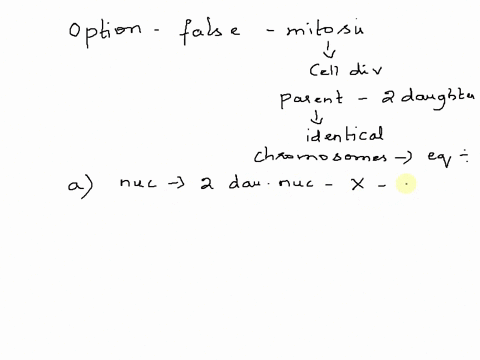 Option - false - mitosis
↓
Cell div
parent - 2 daughter
↓
identical
chromosomes → eq ÷
a) nuc → 2 dau. nuc - X - .